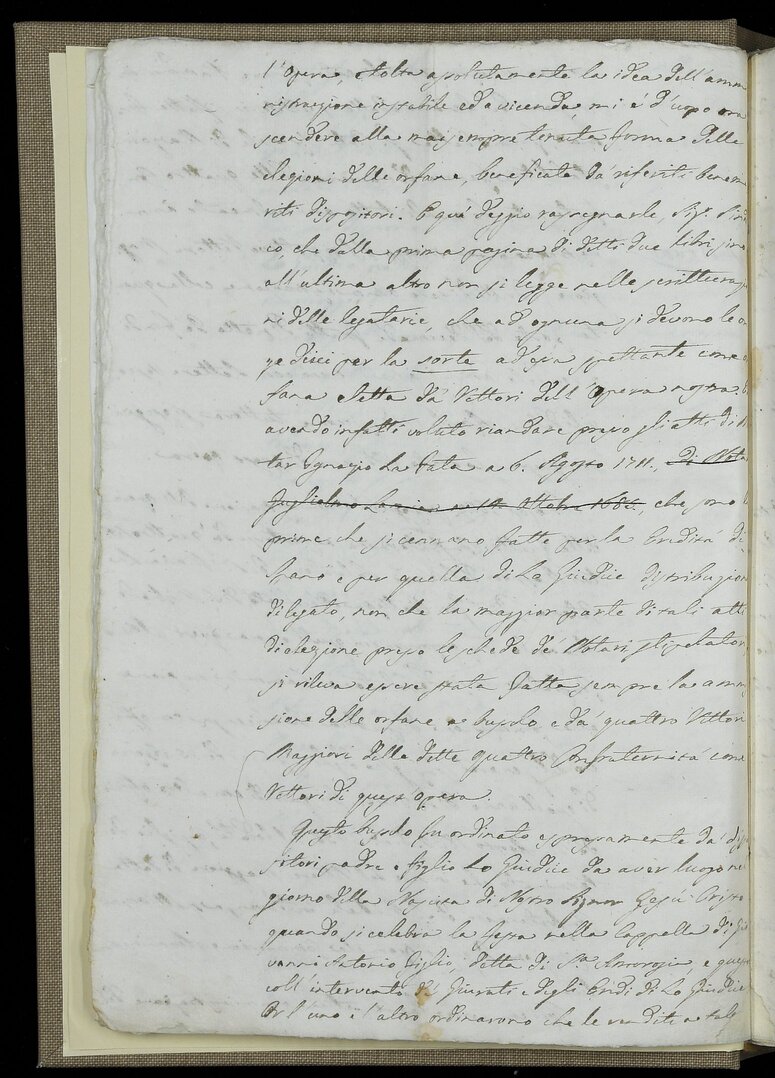 l'Opera, e tolta assolutamente la idea dell'ammi
nistrazione instabile ed a vicenda, mi è d'uopo ora
scendere alla mai sempre tenuta forma delle
elezioni delle orfane, beneficate da' riferiti beneme
riti dispositori. E quì deggio rassegnarle, Sig.r Sinda
co, che dalla prima pagina di detti due libri sino
all'ultima altro non si legge nelle scritturazio
ni delle legatarie, che ad ognuna si devono le on
ze dieci per la sorte ad essa spettante come or
fana eletta da' Rettori dell'Opera nostra.
avendo infatti voluto riandare presso gli atti di No
tar Ignazio La Fata a 6. Agosto 1711., di Nota
Guglielmo 14 Ottobre 1686., che sono le
prime che si cennano fatte per la Eredità di
Spanò e per quella di Lo Giudice distribuzioni
di legato, non che la maggior parte di tali atti
di elezione presso le schede de' Notari stipulatori
si rileva essere stata fatta sempre la ammis
sione delle orfane a bussolo e da' quattro Rettori
Maggiori delle dette quattro Confraternità come
Rettori di quest'opera.
Questo bussolo fu ordinato espressamente da' dispo
sitori padre e figlio Lo Giudice da aver luogo nel
giorno della Nascita di Nostro Signor Gesù Cristo
quando si celebra la festa nella Cappella di Gio
vanni Antonio Giglio, detta di S.n Ambrogio, e questo
coll'intervento de' Giurati e degli Eredi di Lo Giudice
Or l'uno e l'altro ordinarono che le rendite a tale